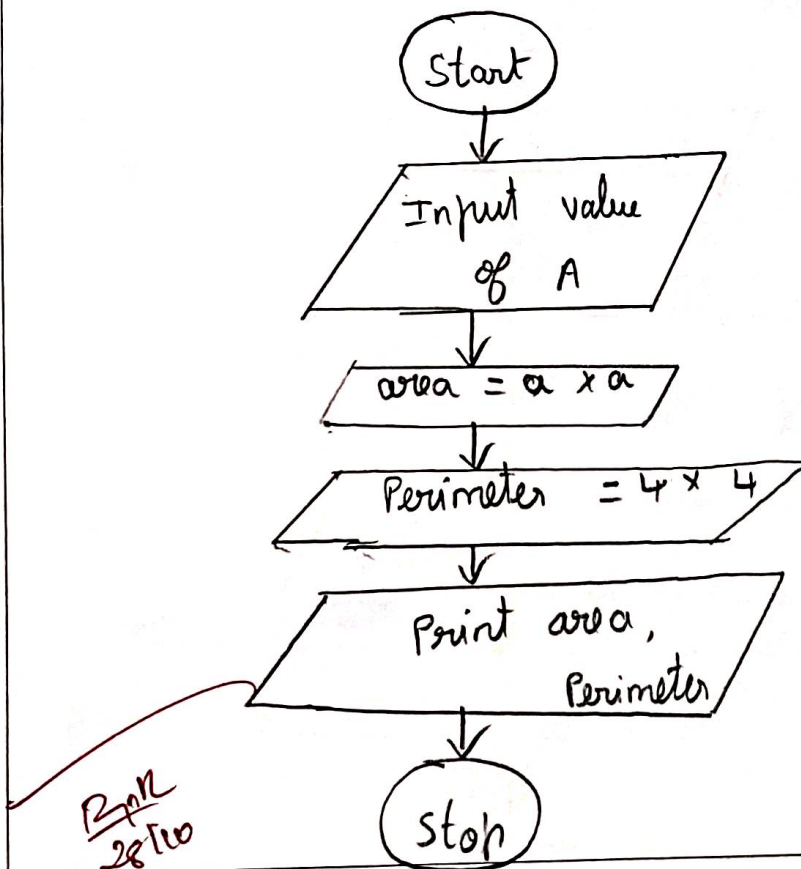 Start
Input value
of A
area = a x a
Perimeter = 4 x 4
Print area,
Perimeter
Stop